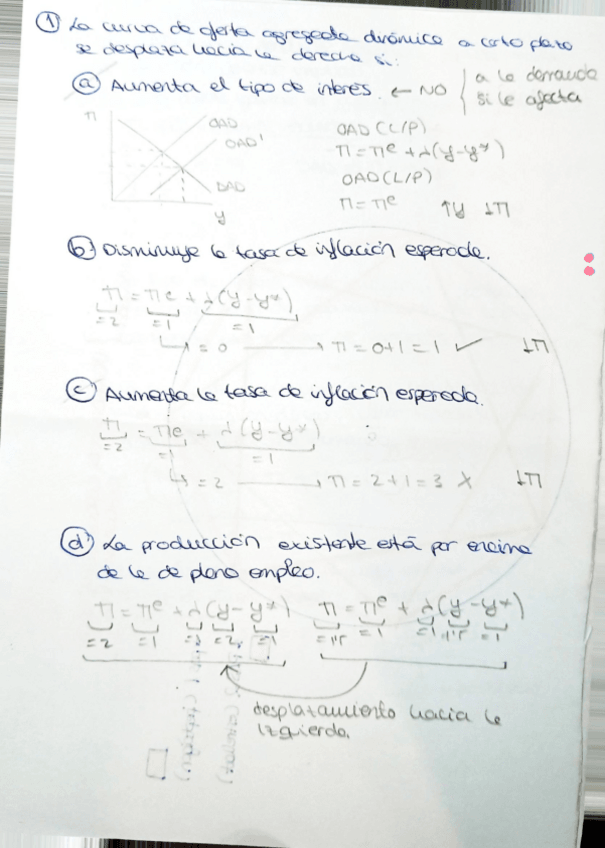 ① La curva de oferta agregada dinámica a corto plazo
se desplaza hacia la derecha si:
ⓐ Aumenta el tipo de interés. ← NO { a la demanda
si le afecta
π
OAD
OAD'
DAD
y
OAD (C/P)
π = πᵉ + λ(y-y*)
OAD (L/P)
π = πᵉ ↑y ↓π
ⓑ Disminuye la tasa de inflación esperada.
π = πᵉ + λ(y-y*)
=2 =1 =1
↳ = 0 → π = 0+1 = 1 ✓ ↓π
ⓒ Aumenta la tasa de inflación esperada.
π = πᵉ + λ(y-y*)
=2 =1 =1
↳ = 2 → π = 2+1 = 3 X ↓π
ⓓ La producción existente está por encima
de la de pleno empleo.
π = πᵉ + λ(y-y*) π = πᵉ + λ(y-y*)
=2 =1 =1 =2 =1 =1'5 =1 =1 =1'5 =1
desplazamiento hacia la
izquierda.